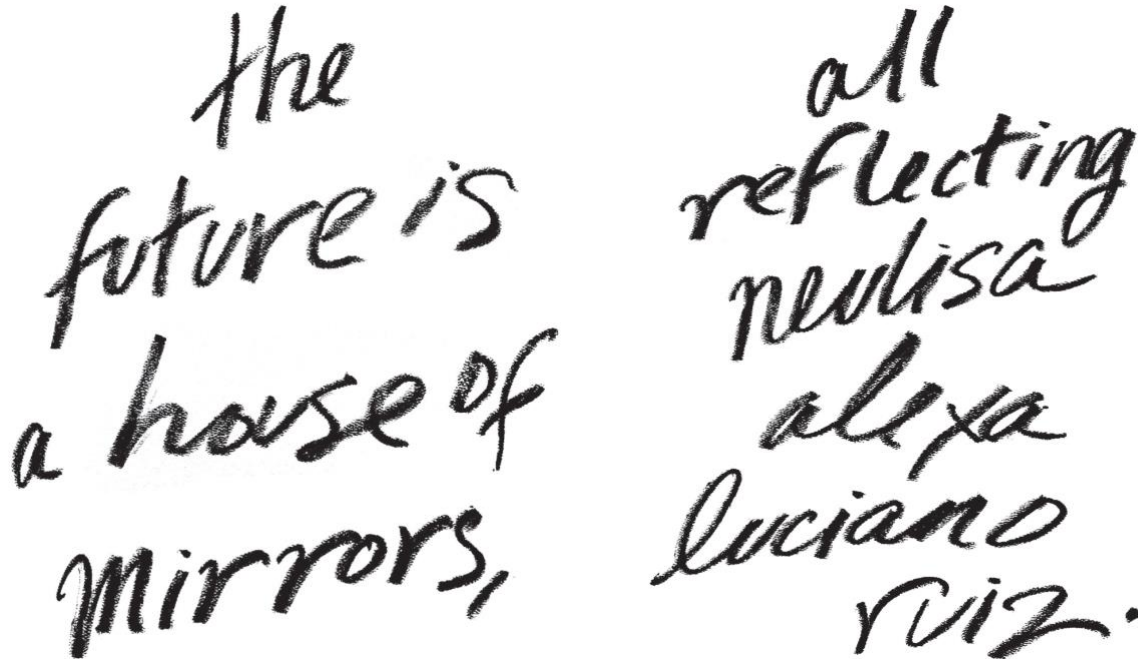 the
future is
a house of
mirrors,
all
reflecting
nevlisa
alexa
luciano
ruiz.